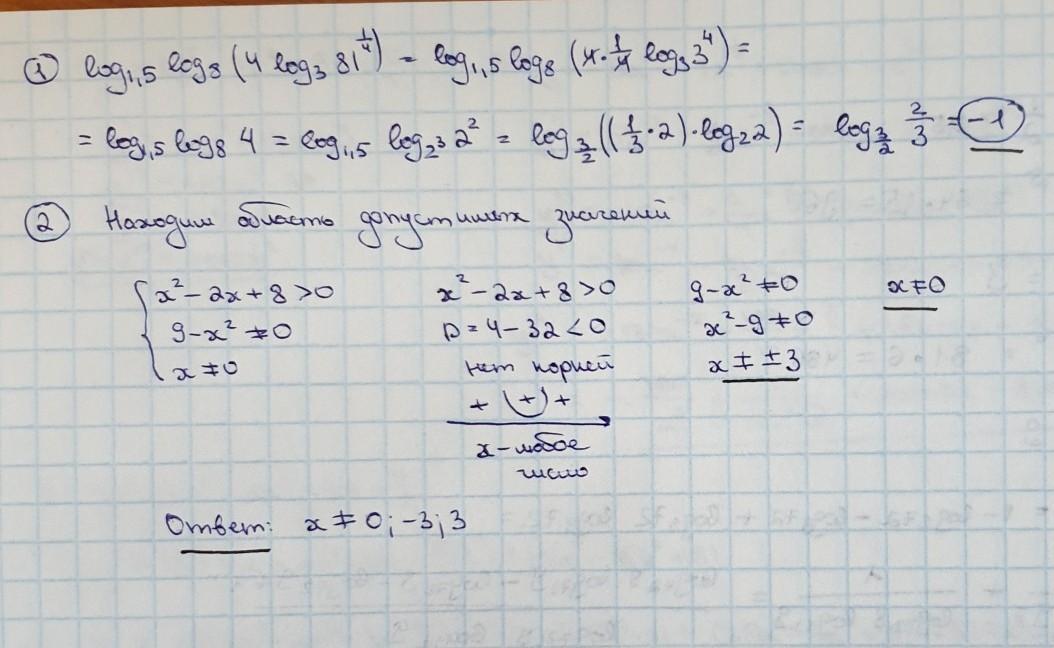 ① log₁,₅ log₈ (4 log₃ 81^(1/4)) = log₁,₅ log₈ (4 · 1/4 log₃ 3⁴) =
= log₁,₅ log₈ 4 = log₁,₅ log_(2³) 2² = log_(3/2) ((1/3 · 2) · log₂ 2) = log_(3/2) 2/3 = -1
② Находим область допустимых значений
{ x² - 2x + 8 > 0 x² - 2x + 8 > 0 9 - x² ≠ 0 x ≠ 0
9 - x² ≠ 0 D = 4 - 32 < 0 x² - 9 ≠ 0
x ≠ 0 нет корней x ≠ ± 3
+ (+) +
x - любое
число
Ответ: x ≠ 0; -3; 3